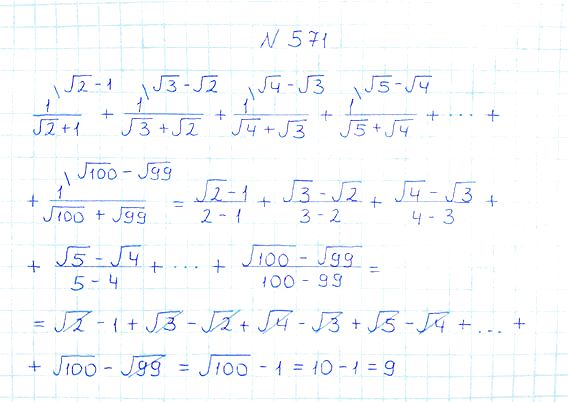 N 571
1\√2-1/(√2+1) + 1\√3-√2/(√3+√2) + 1\√4-√3/(√4+√3) + 1\√5-√4/(√5+√4) + ... +
+ 1\√100-√99/(√100+√99) = (√2-1)/(2-1) + (√3-√2)/(3-2) + (√4-√3)/(4-3) +
+ (√5-√4)/(5-4) + ... + (√100-√99)/(100-99) =
= √2 - 1 + √3 - √2 + √4 - √3 + √5 - √4 + ... +
+ √100 - √99 = √100 - 1 = 10 - 1 = 9